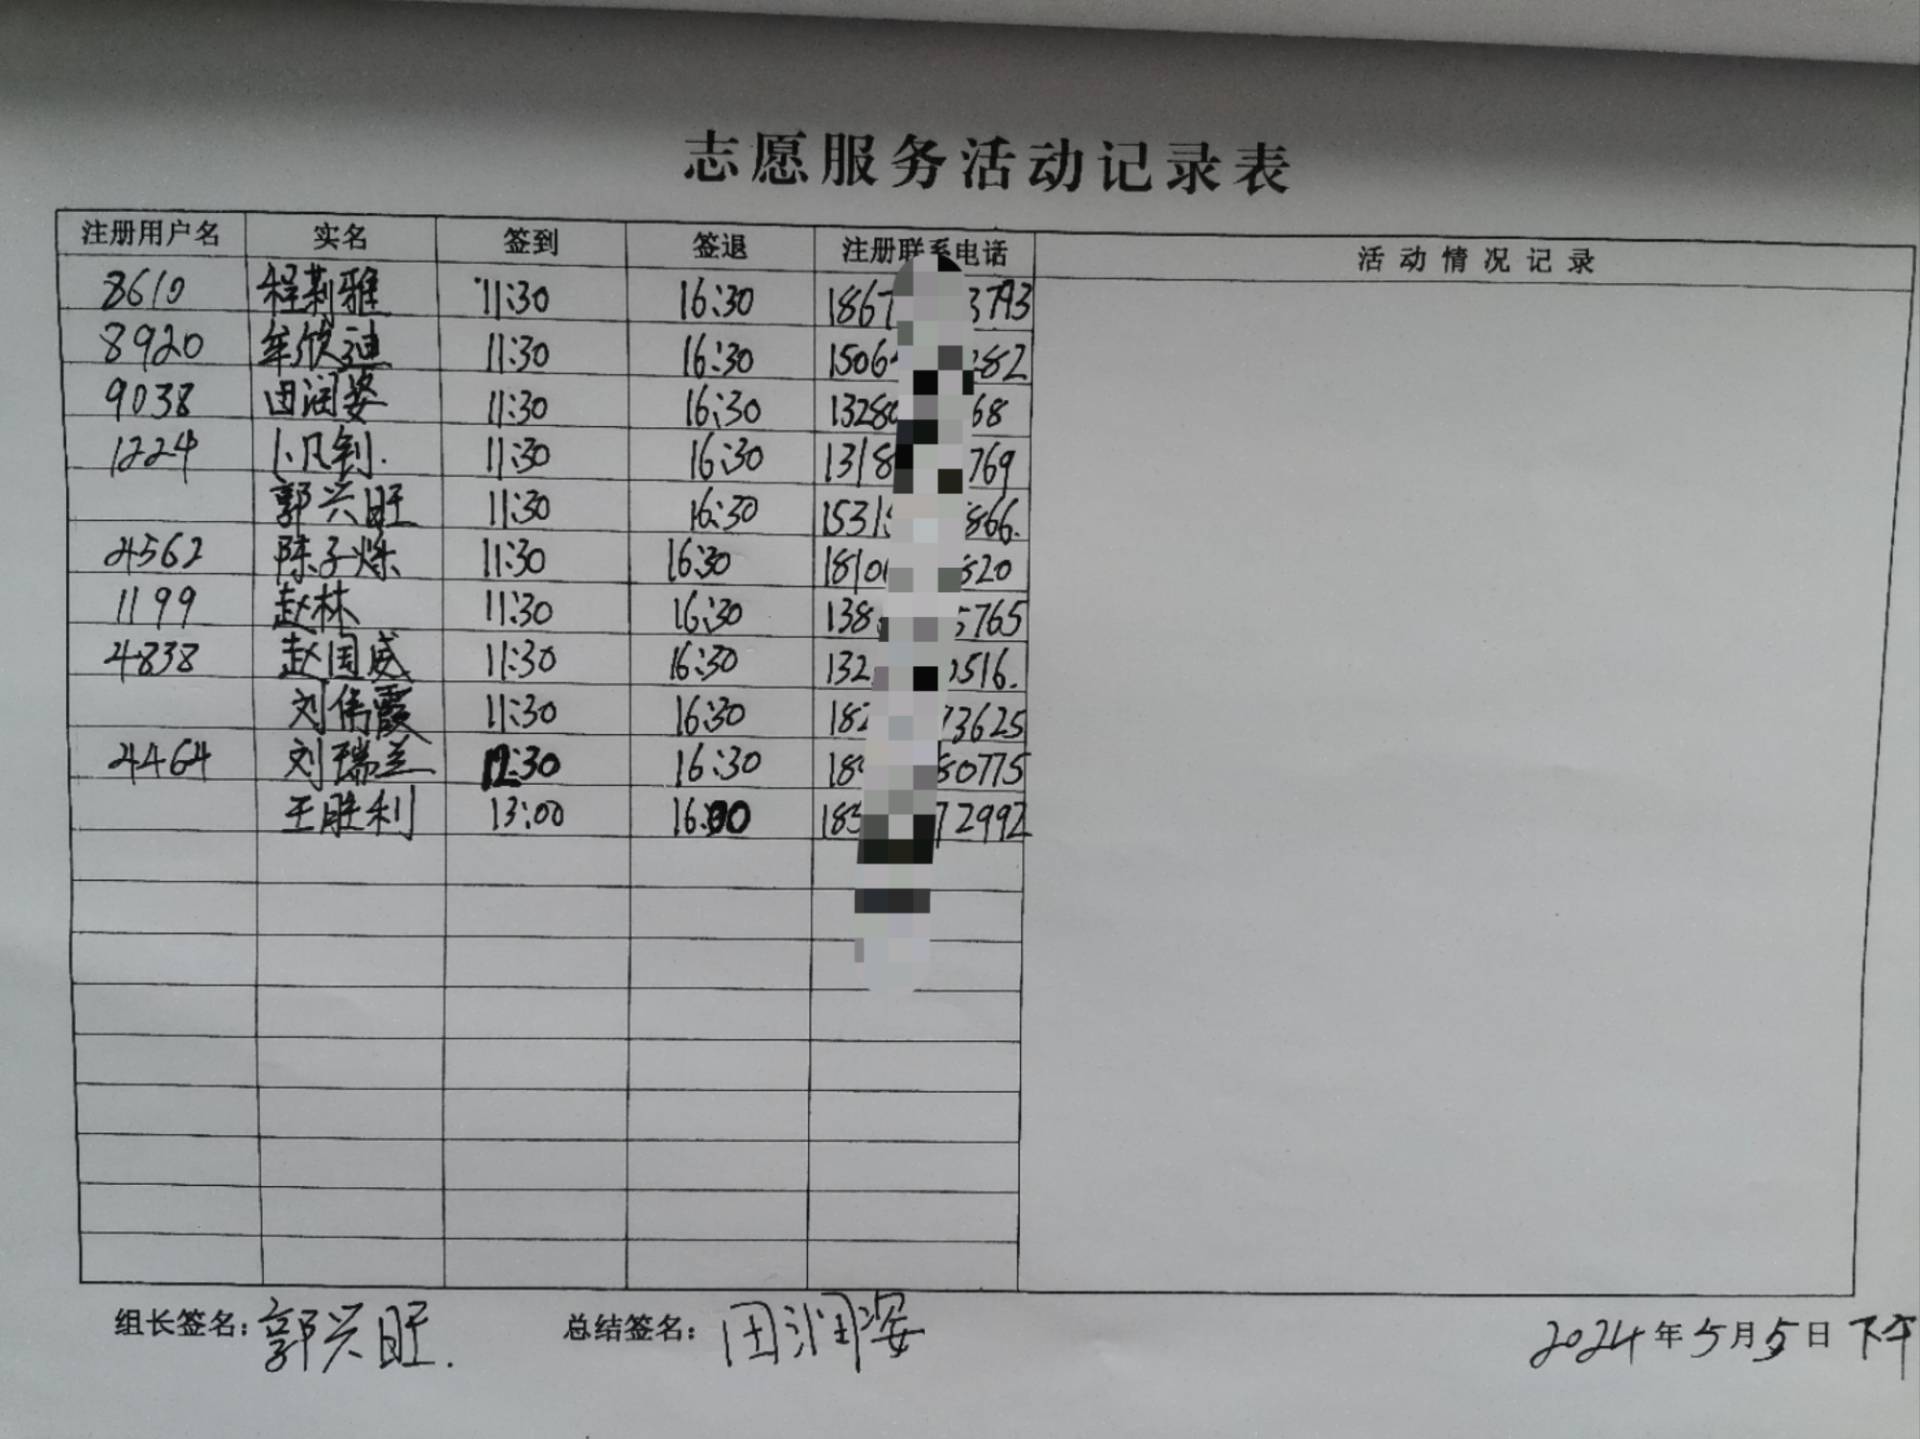 志愿服务活动记录表
注册用户名 实名 签到 签退 注册联系电话 活动情况记录
8610 程莉雅 11:30 16:30 1867 3793
8920 牟欣迪 11:30 16:30 1506 282
9038 田润姿 11:30 16:30 1328 68
1224 卜凡钊 11:30 16:30 1318 769
郭兴旺 11:30 16:30 1531 866.
4562 陈子烁 11:30 16:30 1810 820
1199 赵林 11:30 16:30 138 5765
4838 赵国威 11:30 16:30 132 516.
刘伟霞 11:30 16:30 182 73625
4464 刘瑞兰 12:30 16:30 18 50775
王胜利 13:00 16:00 183 72992
组长签名:郭兴旺. 总结签名:田润姿 2024年5月5日 下午